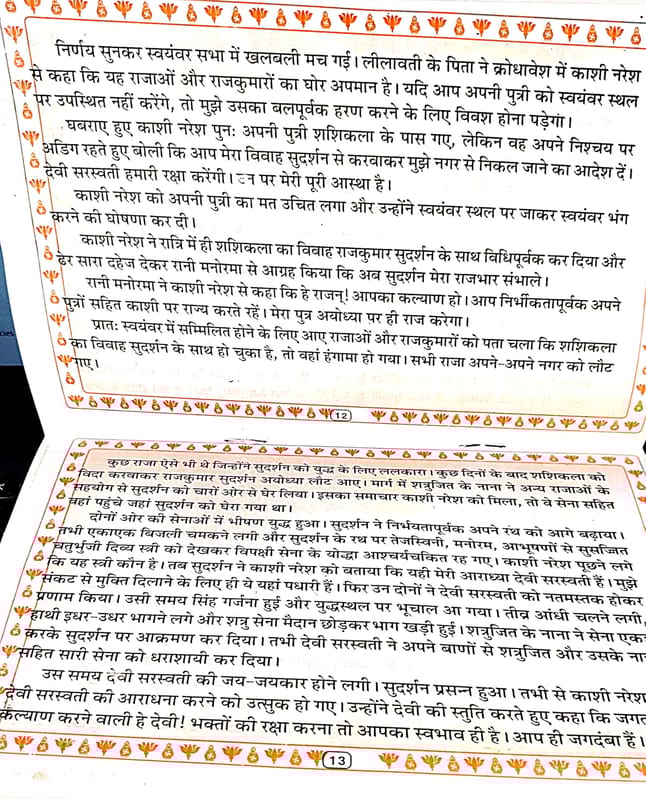 निर्णय सुनकर स्वयंवर सभा में खलबली मच गई। लीलावती के पिता ने क्रोधावेश में काशी नरेश
से कहा कि यह राजाओं और राजकुमारों का घोर अपमान है। यदि आप अपनी पुत्री को स्वयंवर स्थल
पर उपस्थित नहीं करेंगे, तो मुझे उसका बलपूर्वक हरण करने के लिए विवश होना पड़ेगा।
घबराए हुए काशी नरेश पुनः अपनी पुत्री शशिकला के पास गए, लेकिन वह अपने निश्चय पर
अडिग रहते हुए बोली कि आप मेरा विवाह सुदर्शन से करवाकर मुझे नगर से निकल जाने का आदेश दें।
देवी सरस्वती हमारी रक्षा करेंगी। पर मेरी पूरी आस्था है।
काशी नरेश को अपनी पुत्री का मत उचित लगा और उन्होंने स्वयंवर स्थल पर जाकर स्वयंवर भंग
करने की घोषणा कर दी।
काशी नरेश ने रात्रि में ही शशिकला का विवाह राजकुमार सुदर्शन के साथ विधिपूर्वक कर दिया और
ढेर सारा दहेज देकर रानी मनोरमा से आग्रह किया कि अब सुदर्शन मेरा राजभार संभाले।
रानी मनोरमा ने काशी नरेश से कहा कि हे राजन्! आपका कल्याण हो। आप निर्भीकतापूर्वक अपने
पुत्रों सहित काशी पर राज्य करते रहें। मेरा पुत्र अयोध्या पर ही राज करेगा।
प्रातः स्वयंवर में सम्मिलित होने के लिए आए राजाओं और राजकुमारों को पता चला कि शशिकला
का विवाह सुदर्शन के साथ हो चुका है, तो वहां हंगामा हो गया। सभी राजा अपने-अपने नगर को लौट
गए।
12
कुछ राजा ऐसे भी थे जिन्होंने सुदर्शन को युद्ध के लिए ललकारा। कुछ दिनों के बाद शशिकला को
विदा करवाकर राजकुमार सुदर्शन अयोध्या लौट आए। मार्ग में शत्रुजित के नाना ने अन्य राजाओं के
सहयोग से सुदर्शन को चारों ओर से घेर लिया। इसका समाचार काशी नरेश को मिला, तो वे सेना सहित
वहां पहुंचे जहां सुदर्शन को घेरा गया था।
दोनों ओर की सेनाओं में भीषण युद्ध हुआ। सुदर्शन ने निर्भयतापूर्वक अपने रथ को आगे बढ़ाया।
तभी एकाएक बिजली चमकने लगी और सुदर्शन के रथ पर तेजस्विनी, मनोरम, आभूषणों से सुसज्जित
चतुर्भुजी दिव्य स्त्री को देखकर विपक्षी सेना के योद्धा आश्चर्यचकित रह गए। काशी नरेश पूछने लगे
कि यह स्त्री कौन है। तब सुदर्शन ने काशी नरेश को बताया कि यही मेरी आराध्या देवी सरस्वती हैं। मुझे
संकट से मुक्ति दिलाने के लिए ही ये यहां पधारी हैं। फिर उन दोनों ने देवी सरस्वती को नतमस्तक होकर
प्रणाम किया। उसी समय सिंह गर्जना हुई और युद्धस्थल पर भूचाल आ गया। तीव्र आंधी चलने लगी,
हाथी इधर-उधर भागने लगे और शत्रु सेना मैदान छोड़कर भाग खड़ी हुई। शत्रुजित के नाना ने सेना
करके सुदर्शन पर आक्रमण कर दिया। तभी देवी सरस्वती ने अपने बाणों से शत्रुजित और उसके
सहित सारी सेना को धराशायी कर दिया।
उस समय देवी सरस्वती की जय-जयकार होने लगी। सुदर्शन प्रसन्न हुआ। तभी से काशी नरेश
देवी सरस्वती की आराधना करने को उत्सुक हो गए। उन्होंने देवी की स्तुति करते हुए कहा कि जगत
कल्याण करने वाली हे देवी! भक्तों की रक्षा करना तो आपका स्वभाव ही है। आप ही जगदंबा हैं।
13